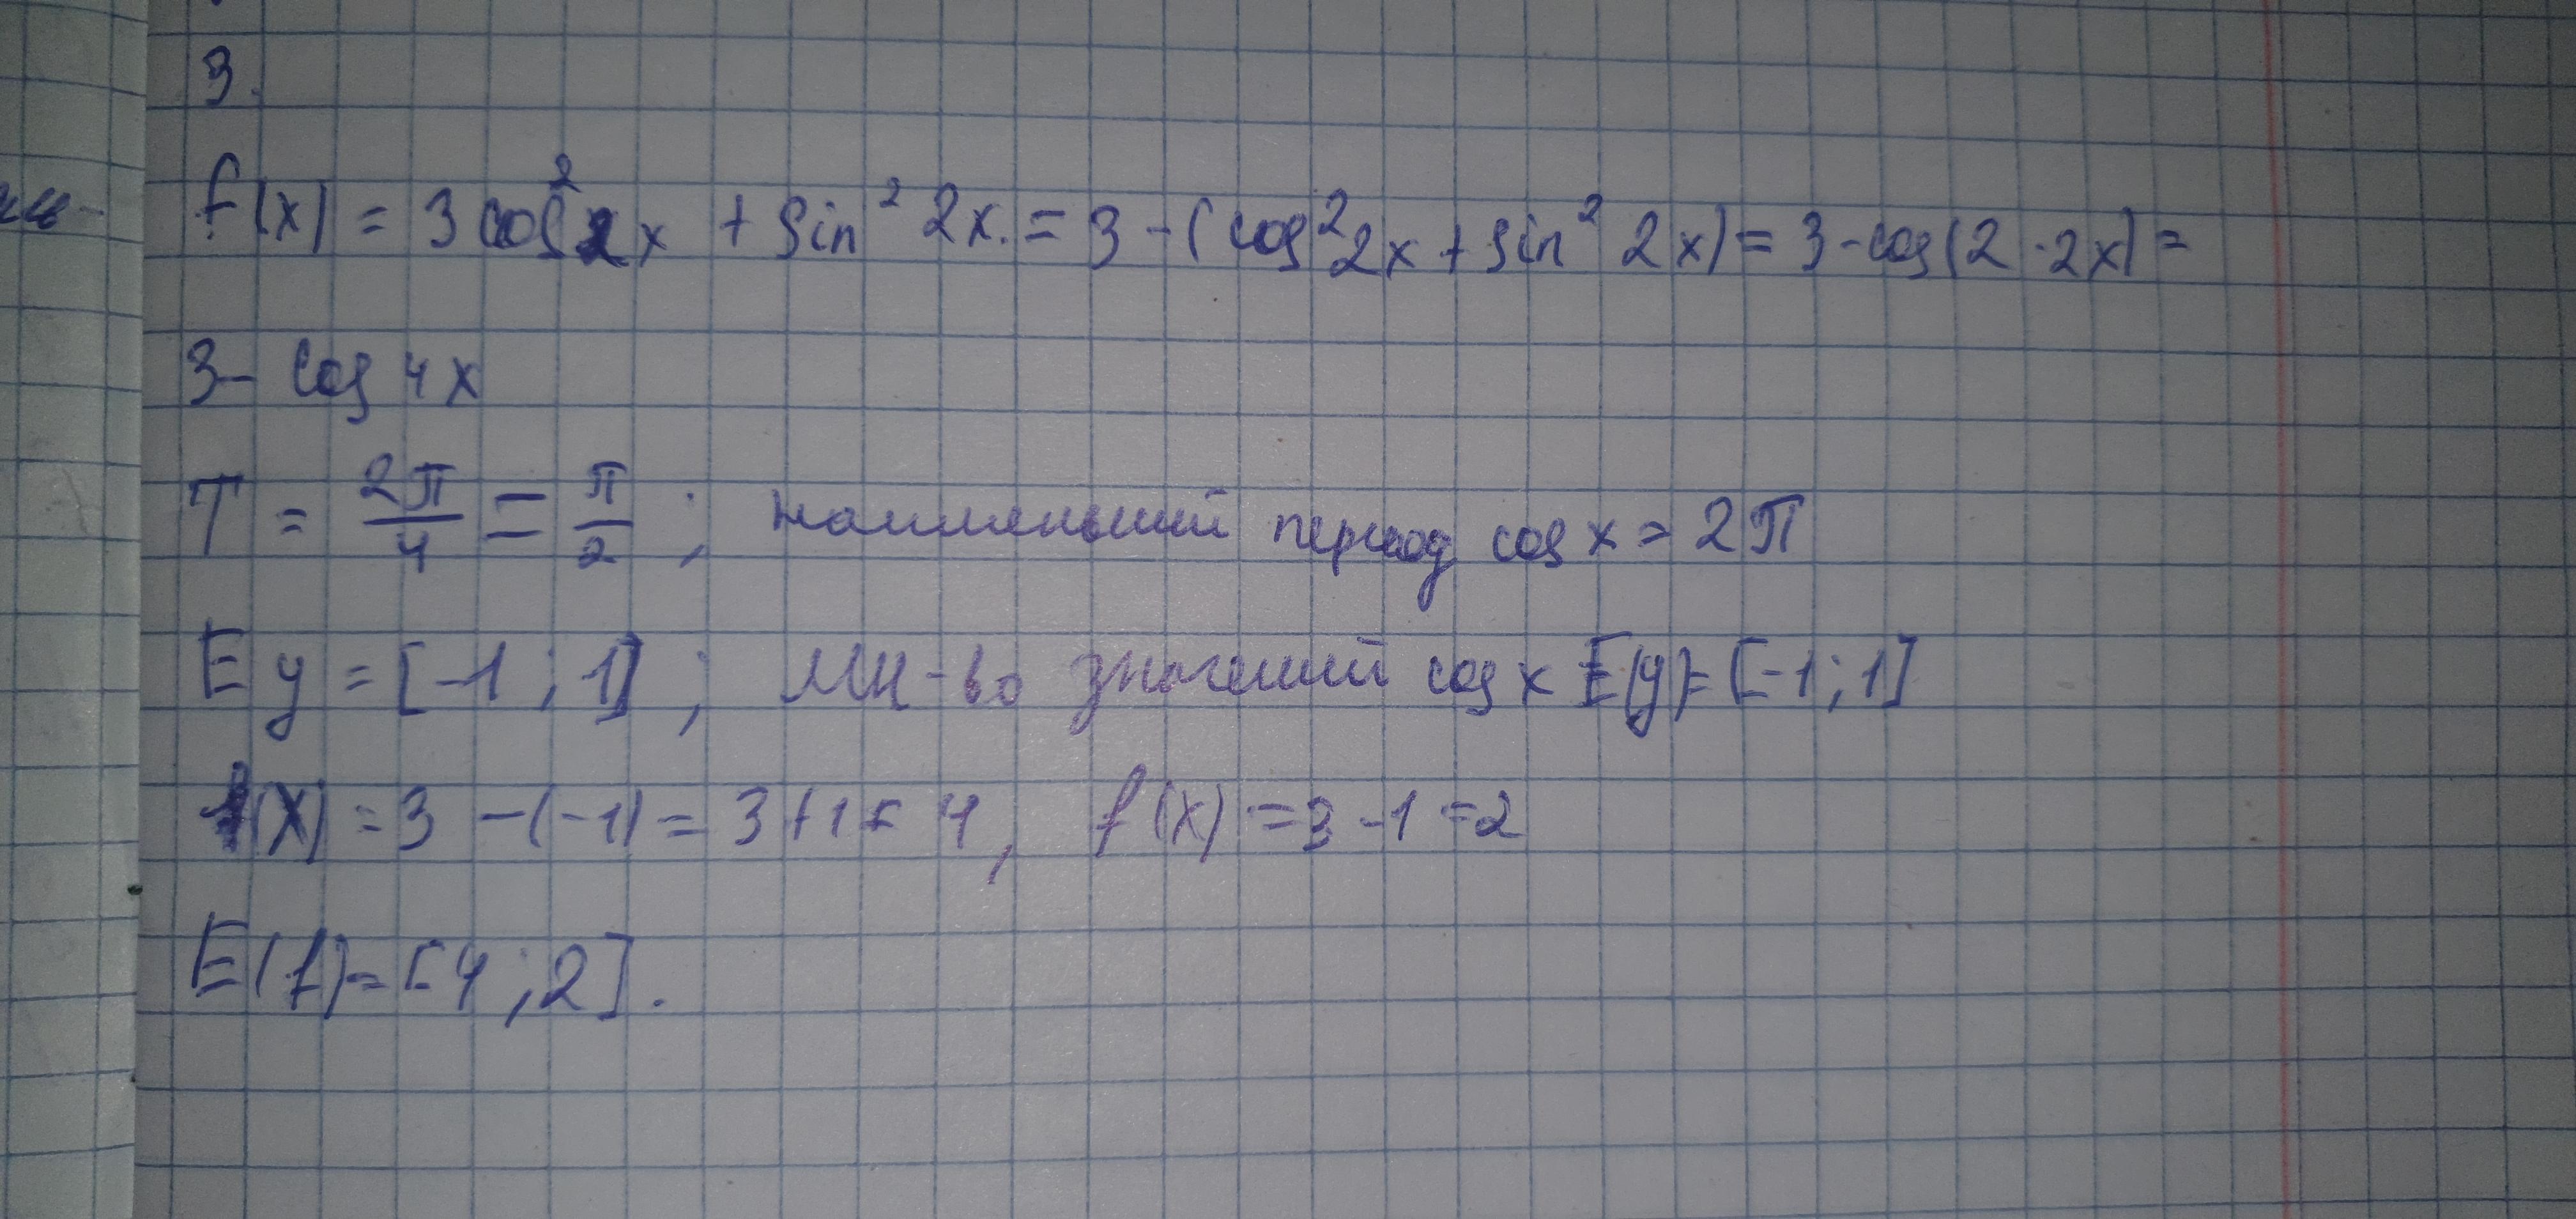 3.
f(x) = 3 cos² 2x + sin² 2x. = 3 - (cos² 2x + sin² 2x) = 3 - cos(2 · 2x) =
3 - cos 4x
T = 2π/4 = π/2 ; наименьший период cos x = 2π
E y = [-1 ; 1] ; мн-во значений cos x E(y) = [-1 ; 1]
f(x) = 3 - (-1) = 3 + 1 = 4, f(x) = 3 - 1 = 2
E(f) = [4 ; 2].